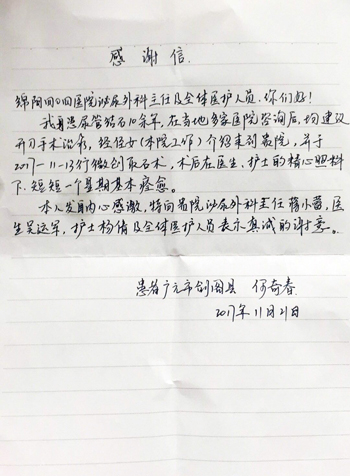 感谢信
绵阳四〇四医院泌尿外科主任及全体医护人员,你们好!
我身患尿管结石10余年,在当地多家医院咨询后,均建议
开刀手术治疗,经侄女(本院工作)介绍来到贵院,并于
2017-11-13行微创取石术,术后在医生、护士的精心照料
下,短短一个星期基本痊愈。
本人发自内心感激,特向贵院泌尿外科主任 蒋小蓉,医
生吴运军,护士杨倩及全体医护人员表示真诚的谢意。
患者广元市剑阁县 何奇春
2017年11月21日